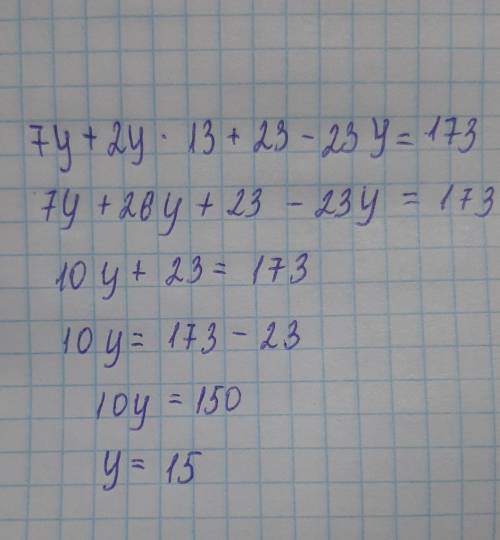 7y + 2y · 13 + 23 - 23y = 173
7y + 26y + 23 - 23y = 173
10y + 23 = 173
10y = 173 - 23
10y = 150
y = 15